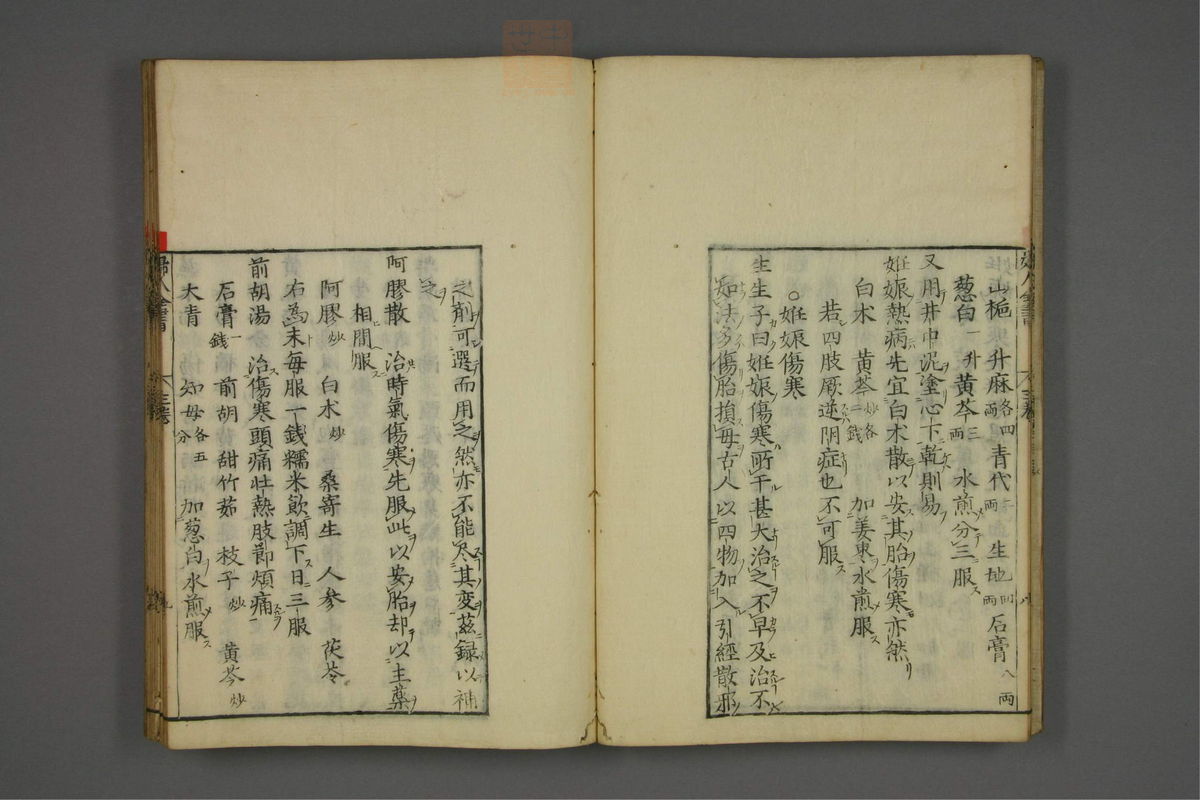 山梔 升麻各四両 青代二両 生地四両 石膏八両
葱白一升 黄芩三両 水煎分三服
又用井中泥塗心下乾則易
妊娠熱病先宜白术散以安其胎傷寒亦然
白术 黄芩炒各二錢 加姜枣水煎服
若四肢厥逆阴症也不可服
○妊娠傷寒
生生子曰妊娠傷寒所干甚大治之不早及治不
知法多傷胎損母古人以四物加入引經散邪
之剤可選而用之然亦不能尽其变茲録以神
之
阿膠散 治時氣傷寒先服此以安胎却以主藥
相間服
阿膠炒 白术炒 桑寄生 人参 茯苓
右為末每服一錢糯米飲調下日三服
前胡湯 治傷寒頭痛壮熱肢節煩痛
石膏一錢 前胡 甜竹茹 枝子炒 黄芩炒
大青 知母各五分 加葱白水煎服